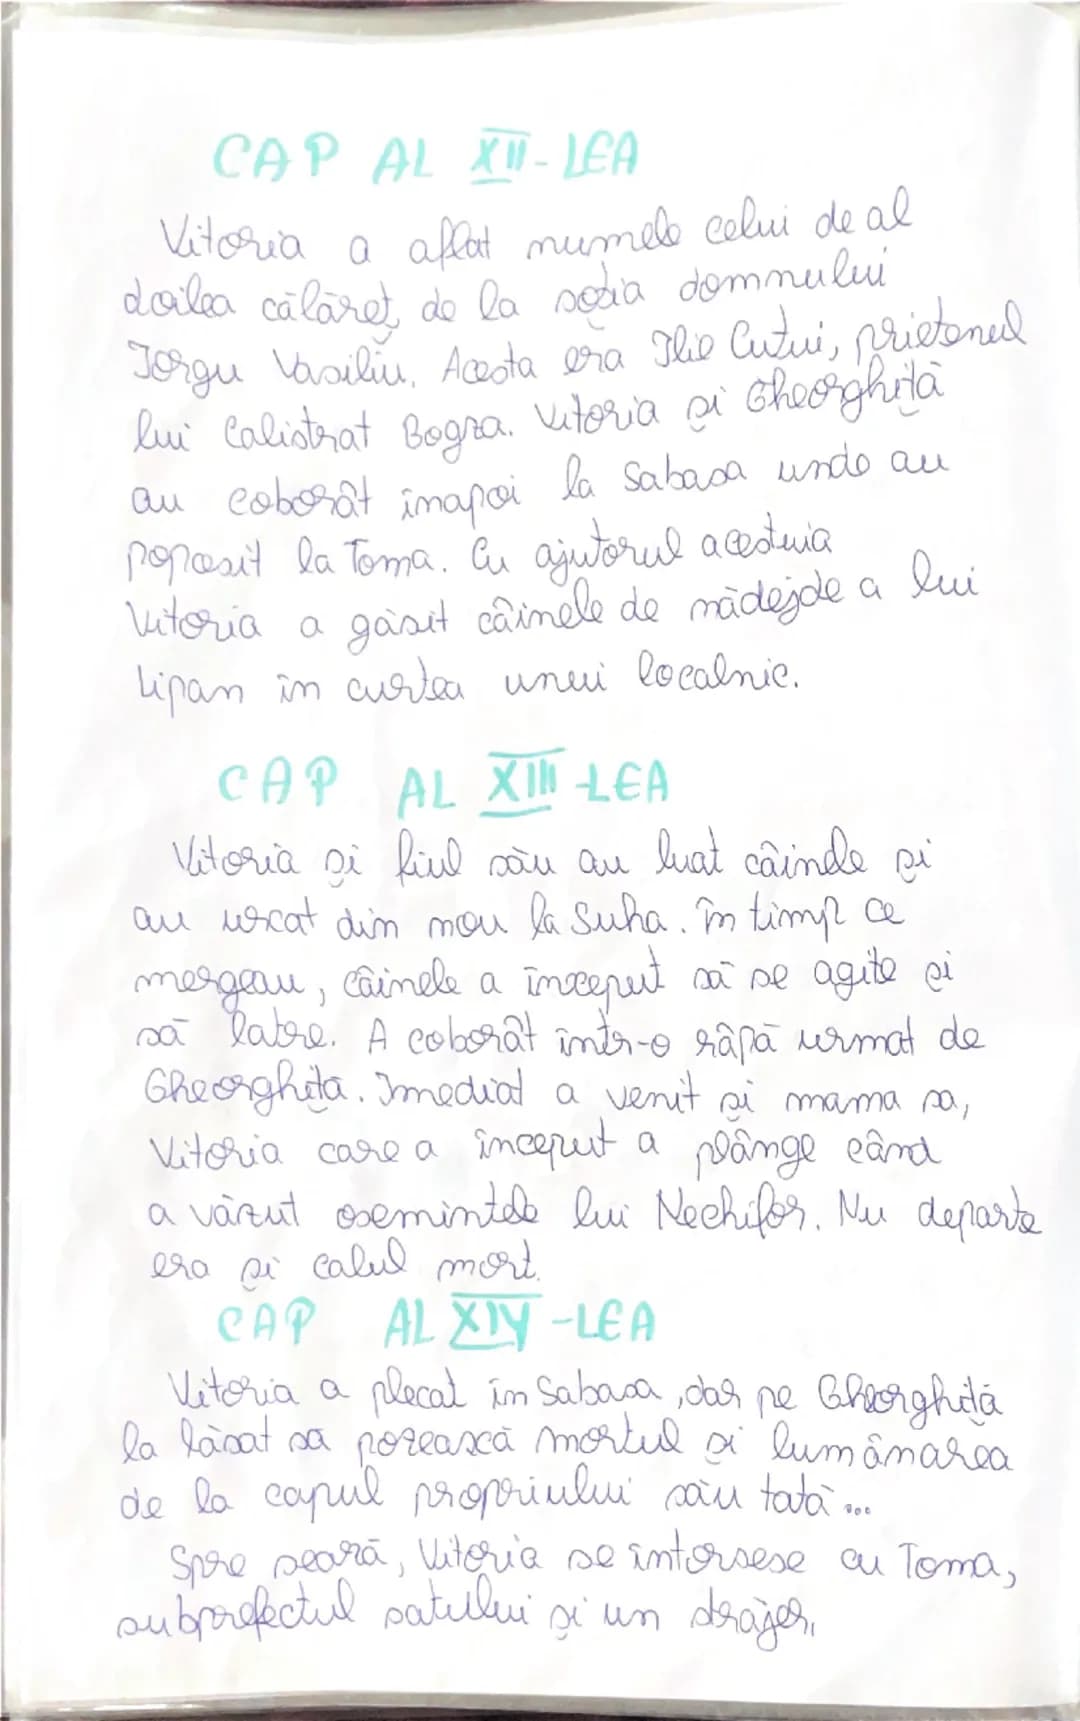 CAP AL XII-LEA
Vitoria a aflat numele celui de al
doilea călăreț de la soția domnului
Iorgu Vasiliu. Acesta era Ilie Cuțui, prietenul
lui Calistrat Bogza. Vitoria și Gheorghiță
au coborât înapoi la Sabasa unde au
poposit la Toma. Cu ajutorul acestuia
Vitoria a găsit câinele de nădejde a lui
Lipan în curtea unui localnic.
CAP AL XIII-LEA
Vitoria și fiul său au luat câinele și
au urcat din nou la Suha. În timp ce
mergeau, câinele a început să se agite și
să latre. A coborât într-o râpă urmat de
Gheorghiță. Imediat a venit și mama sa,
Vitoria care a început a plânge când
a văzut osemintele lui Nechifor. Nu departe
era și calul mort.
CAP AL XIV-LEA
Vitoria a plecat în Sabasa, dar pe Gheorghiță
la lăsat să pozească mortul și lumânarea
de la capul propriului său tată...
Spre seară, Vitoria se întorsese cu Toma,
subprefectul satului și un străjer,